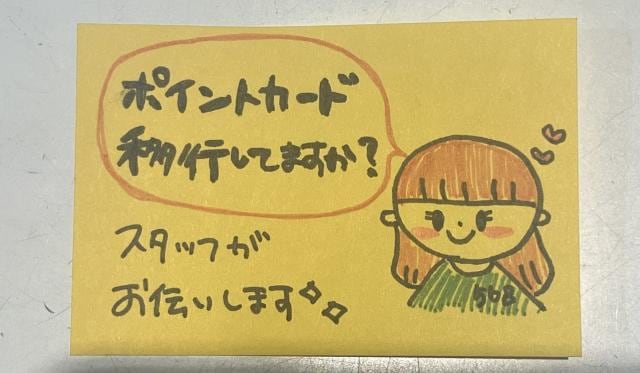 ポイントカード
移行してますか?
スタッフが
お伝いします
568